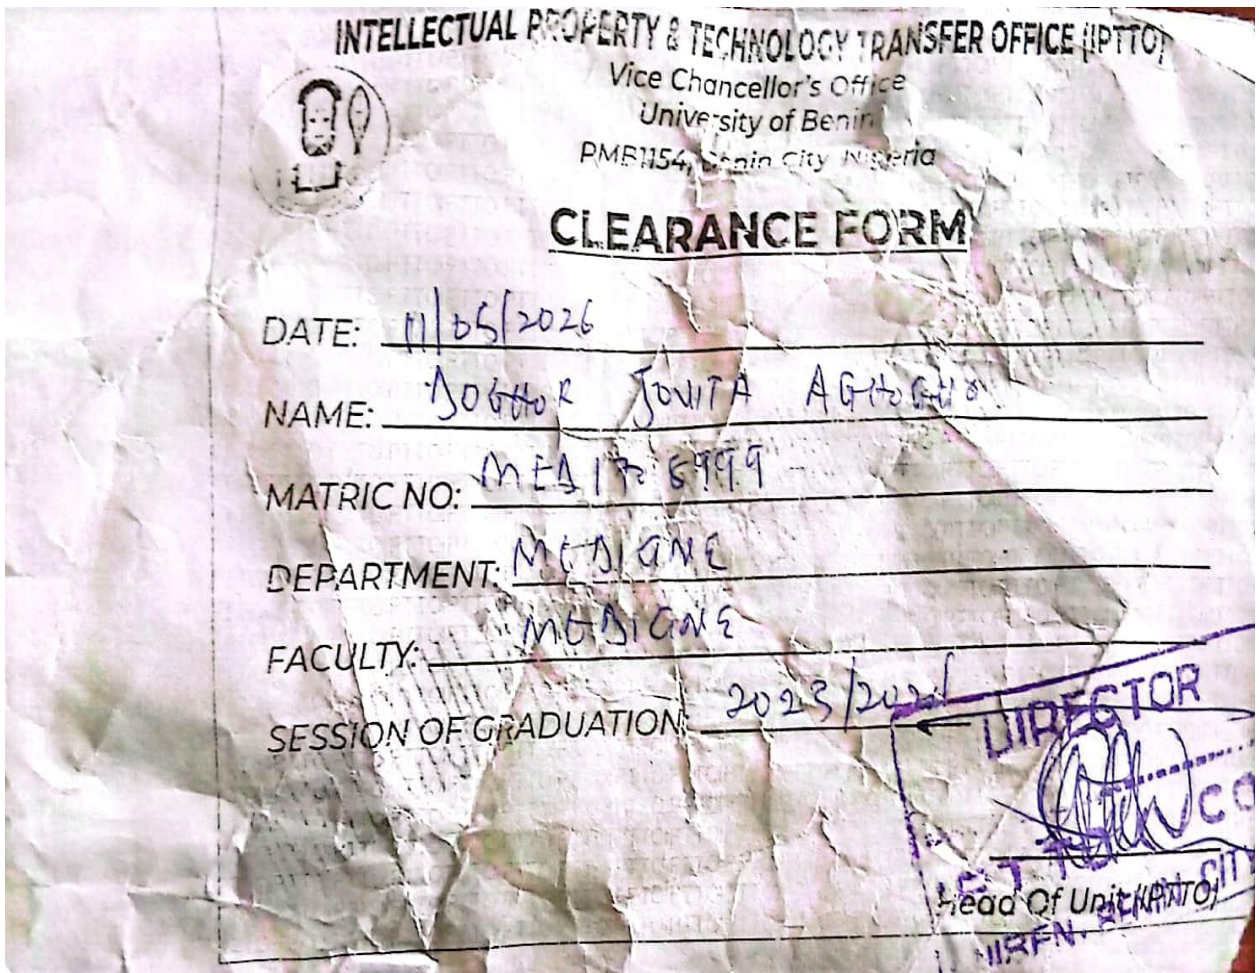 INTELLECTUAL PROPERTY & TECHNOLOGY TRANSFER OFFICE (IPTTO)
Vice Chancellor's Office
University of Benin
PMB1154, Benin City, Nigeria
CLEARANCE FORM
DATE: 11/05/2026
NAME: JOVITA
MATRIC NO:
DEPARTMENT: MEDICINE
FACULTY: MEDICINE
SESSION OF GRADUATION: 2023/
DIRECTOR
Head Of Unit (IPTTO)
CITY